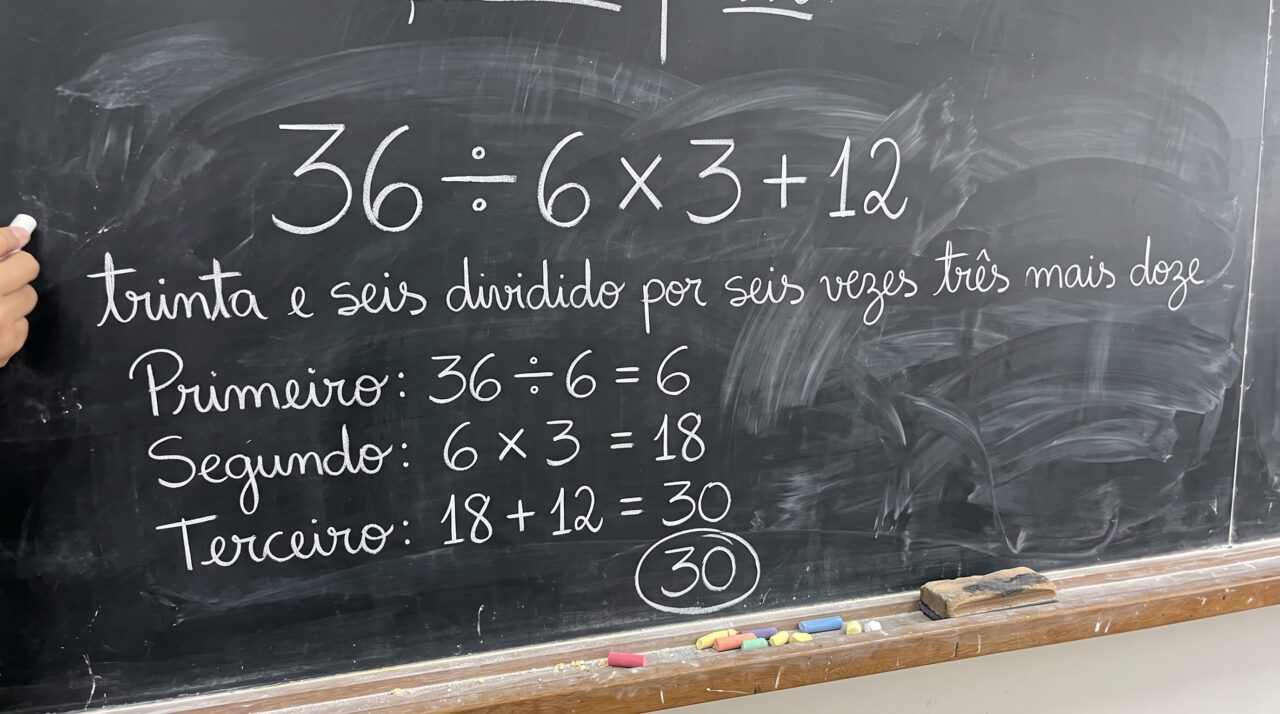 36 ÷ 6 × 3 + 12
trinta e seis dividido por seis vezes três mais doze
Primeiro: 36 ÷ 6 = 6
Segundo: 6 × 3 = 18
Terceiro: 18 + 12 = 30
30